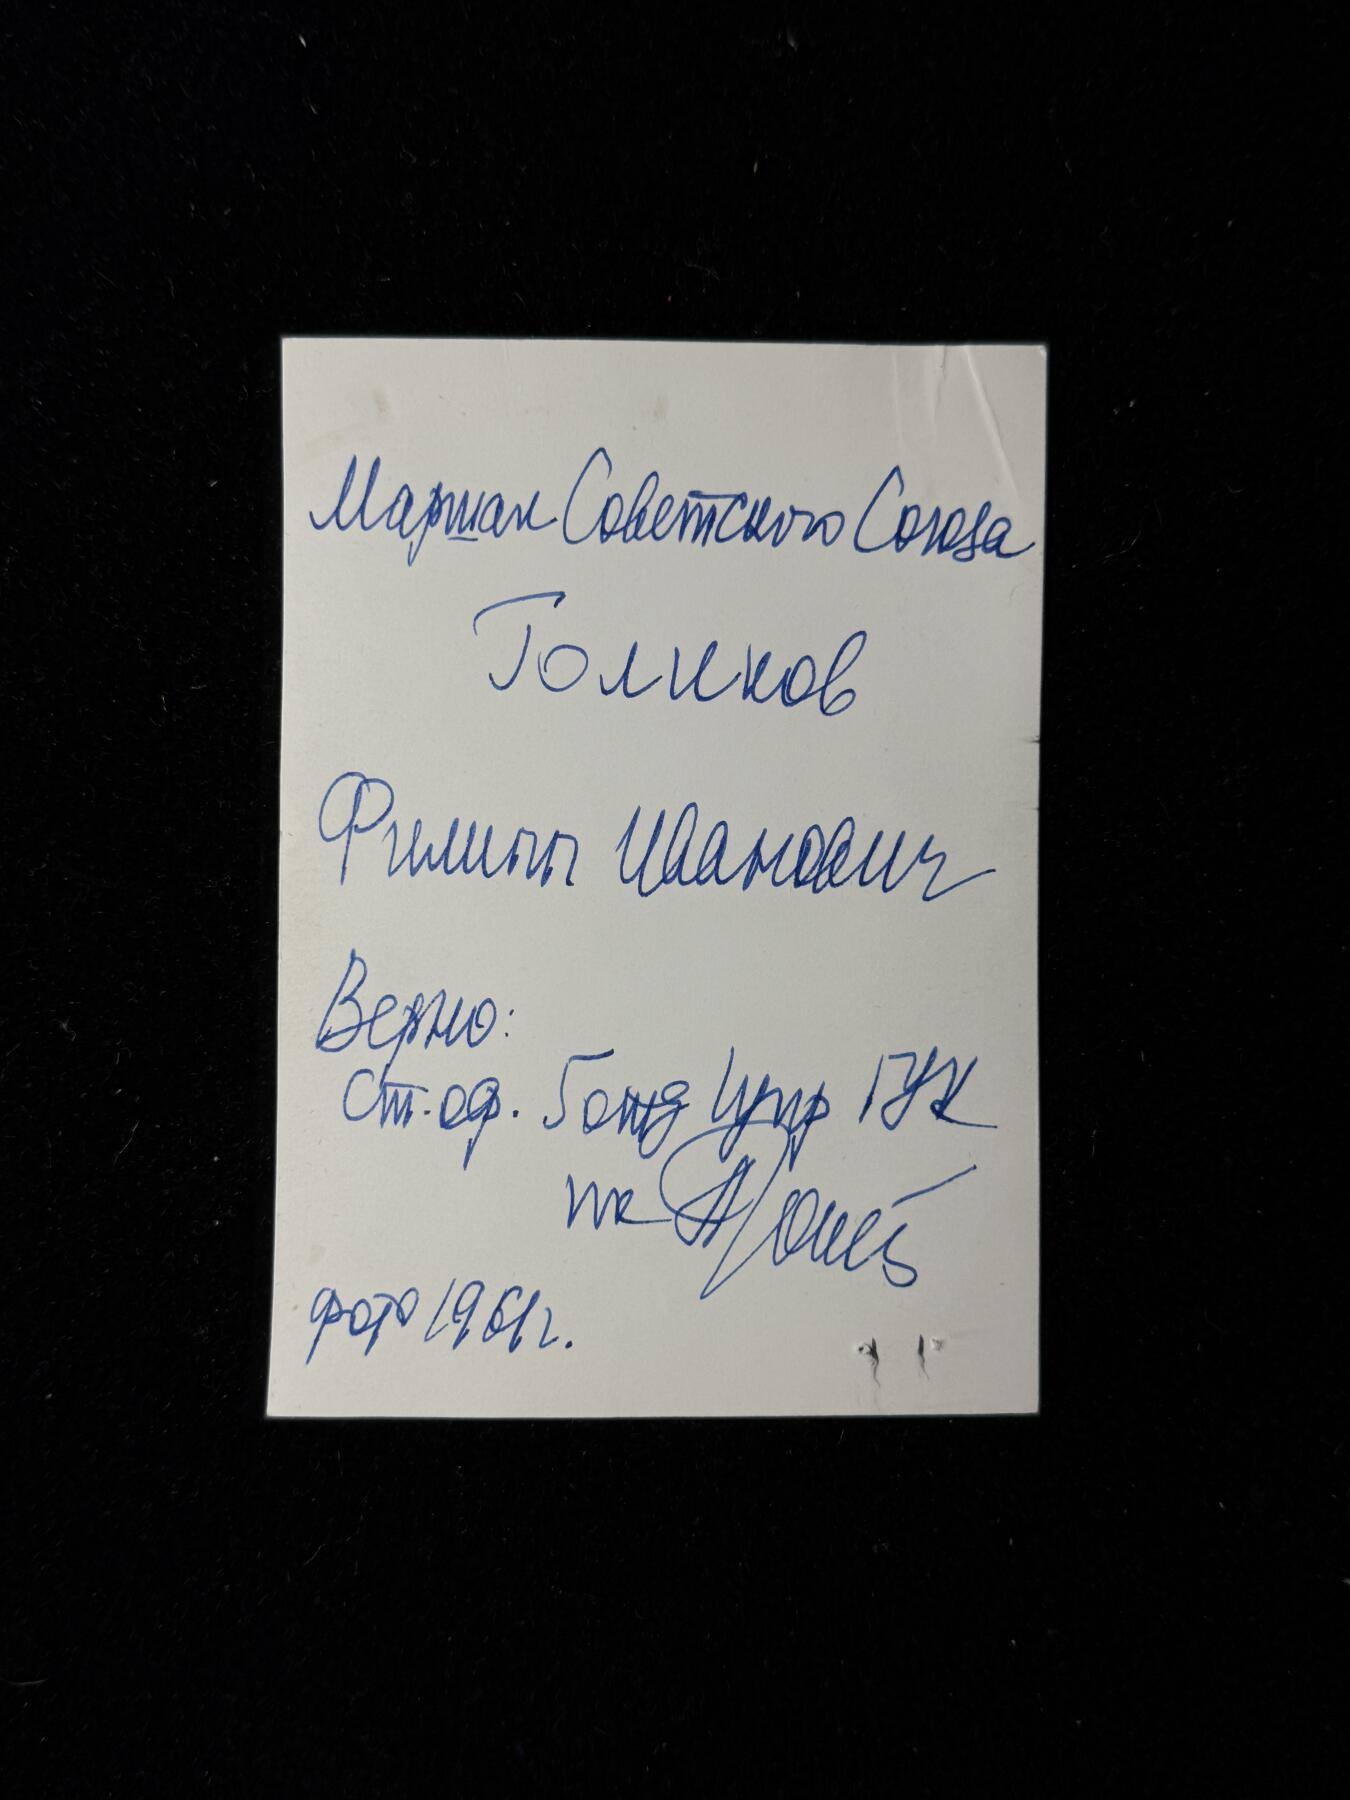 Маршал Советского Союза
Голиков
Филипп Иванович
Верно:
Ст. оф. Упр ГУК
фото 1961г.